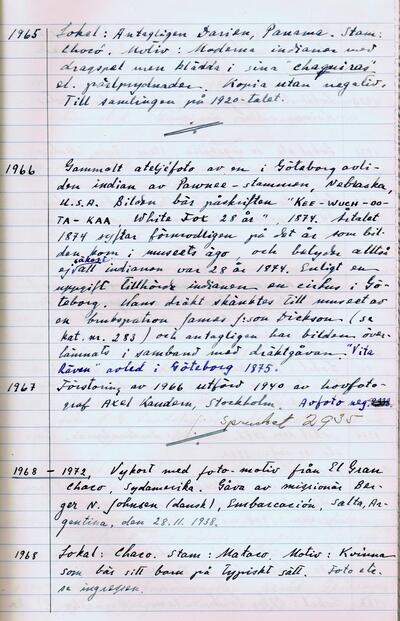 1965 Lokal: Antagligen Darien, Panama. Stam:
Chocó. Motiv: Moderna indianer med
dragspel men klädda i sina "chaquiras"
el. pärlprydnader. Kopia utan negativ.
Till samlingen på 1920-talet.
1966 Gammalt ateljéfoto av en i Göteborg avli-
den indian av Pawnee-stammen, Nebraska,
U.S.A. Bilden bär påskriften "KEE-WUCH-OO-
TA-KAA, White Fox 28 år", 1874. Årtalet
1874 syftar förmodligen på det år som bil-
den kom i museets ägo och betyder alltså
ej säkert att indianen var 28 år 1974. Enligt en
uppgift tillhörde indianen en cirkus i Gö-
teborg. Hans dräkt skänktes till museet av
en brukspatron James f:son Dickson (se
kat. nr. 283) och antagligen har bilden över-
lämnats i samband med dräktgåvan. "Vita
Räven" avled i Göteborg 1875.
1967 Förstoring av 1966 utförd 1940 av hovfoto-
graf Axel Kaudern, Stockholm. Avfoto neg.
Sprucket 2935
1968 - 1972. Vykort med foto-motiv från El Gran
Chaco, Sydamerika. Gåva av missionär Ber-
ger N. Johnsen (dansk), Embarcación, Salta, Ar-
gentina, den 28.11.1938.
1968 Lokal: Chaco. Stam: Mataco. Motiv: Kvinna
som bär sitt barn på typiskt sätt. Foto etc.
se ingressen.